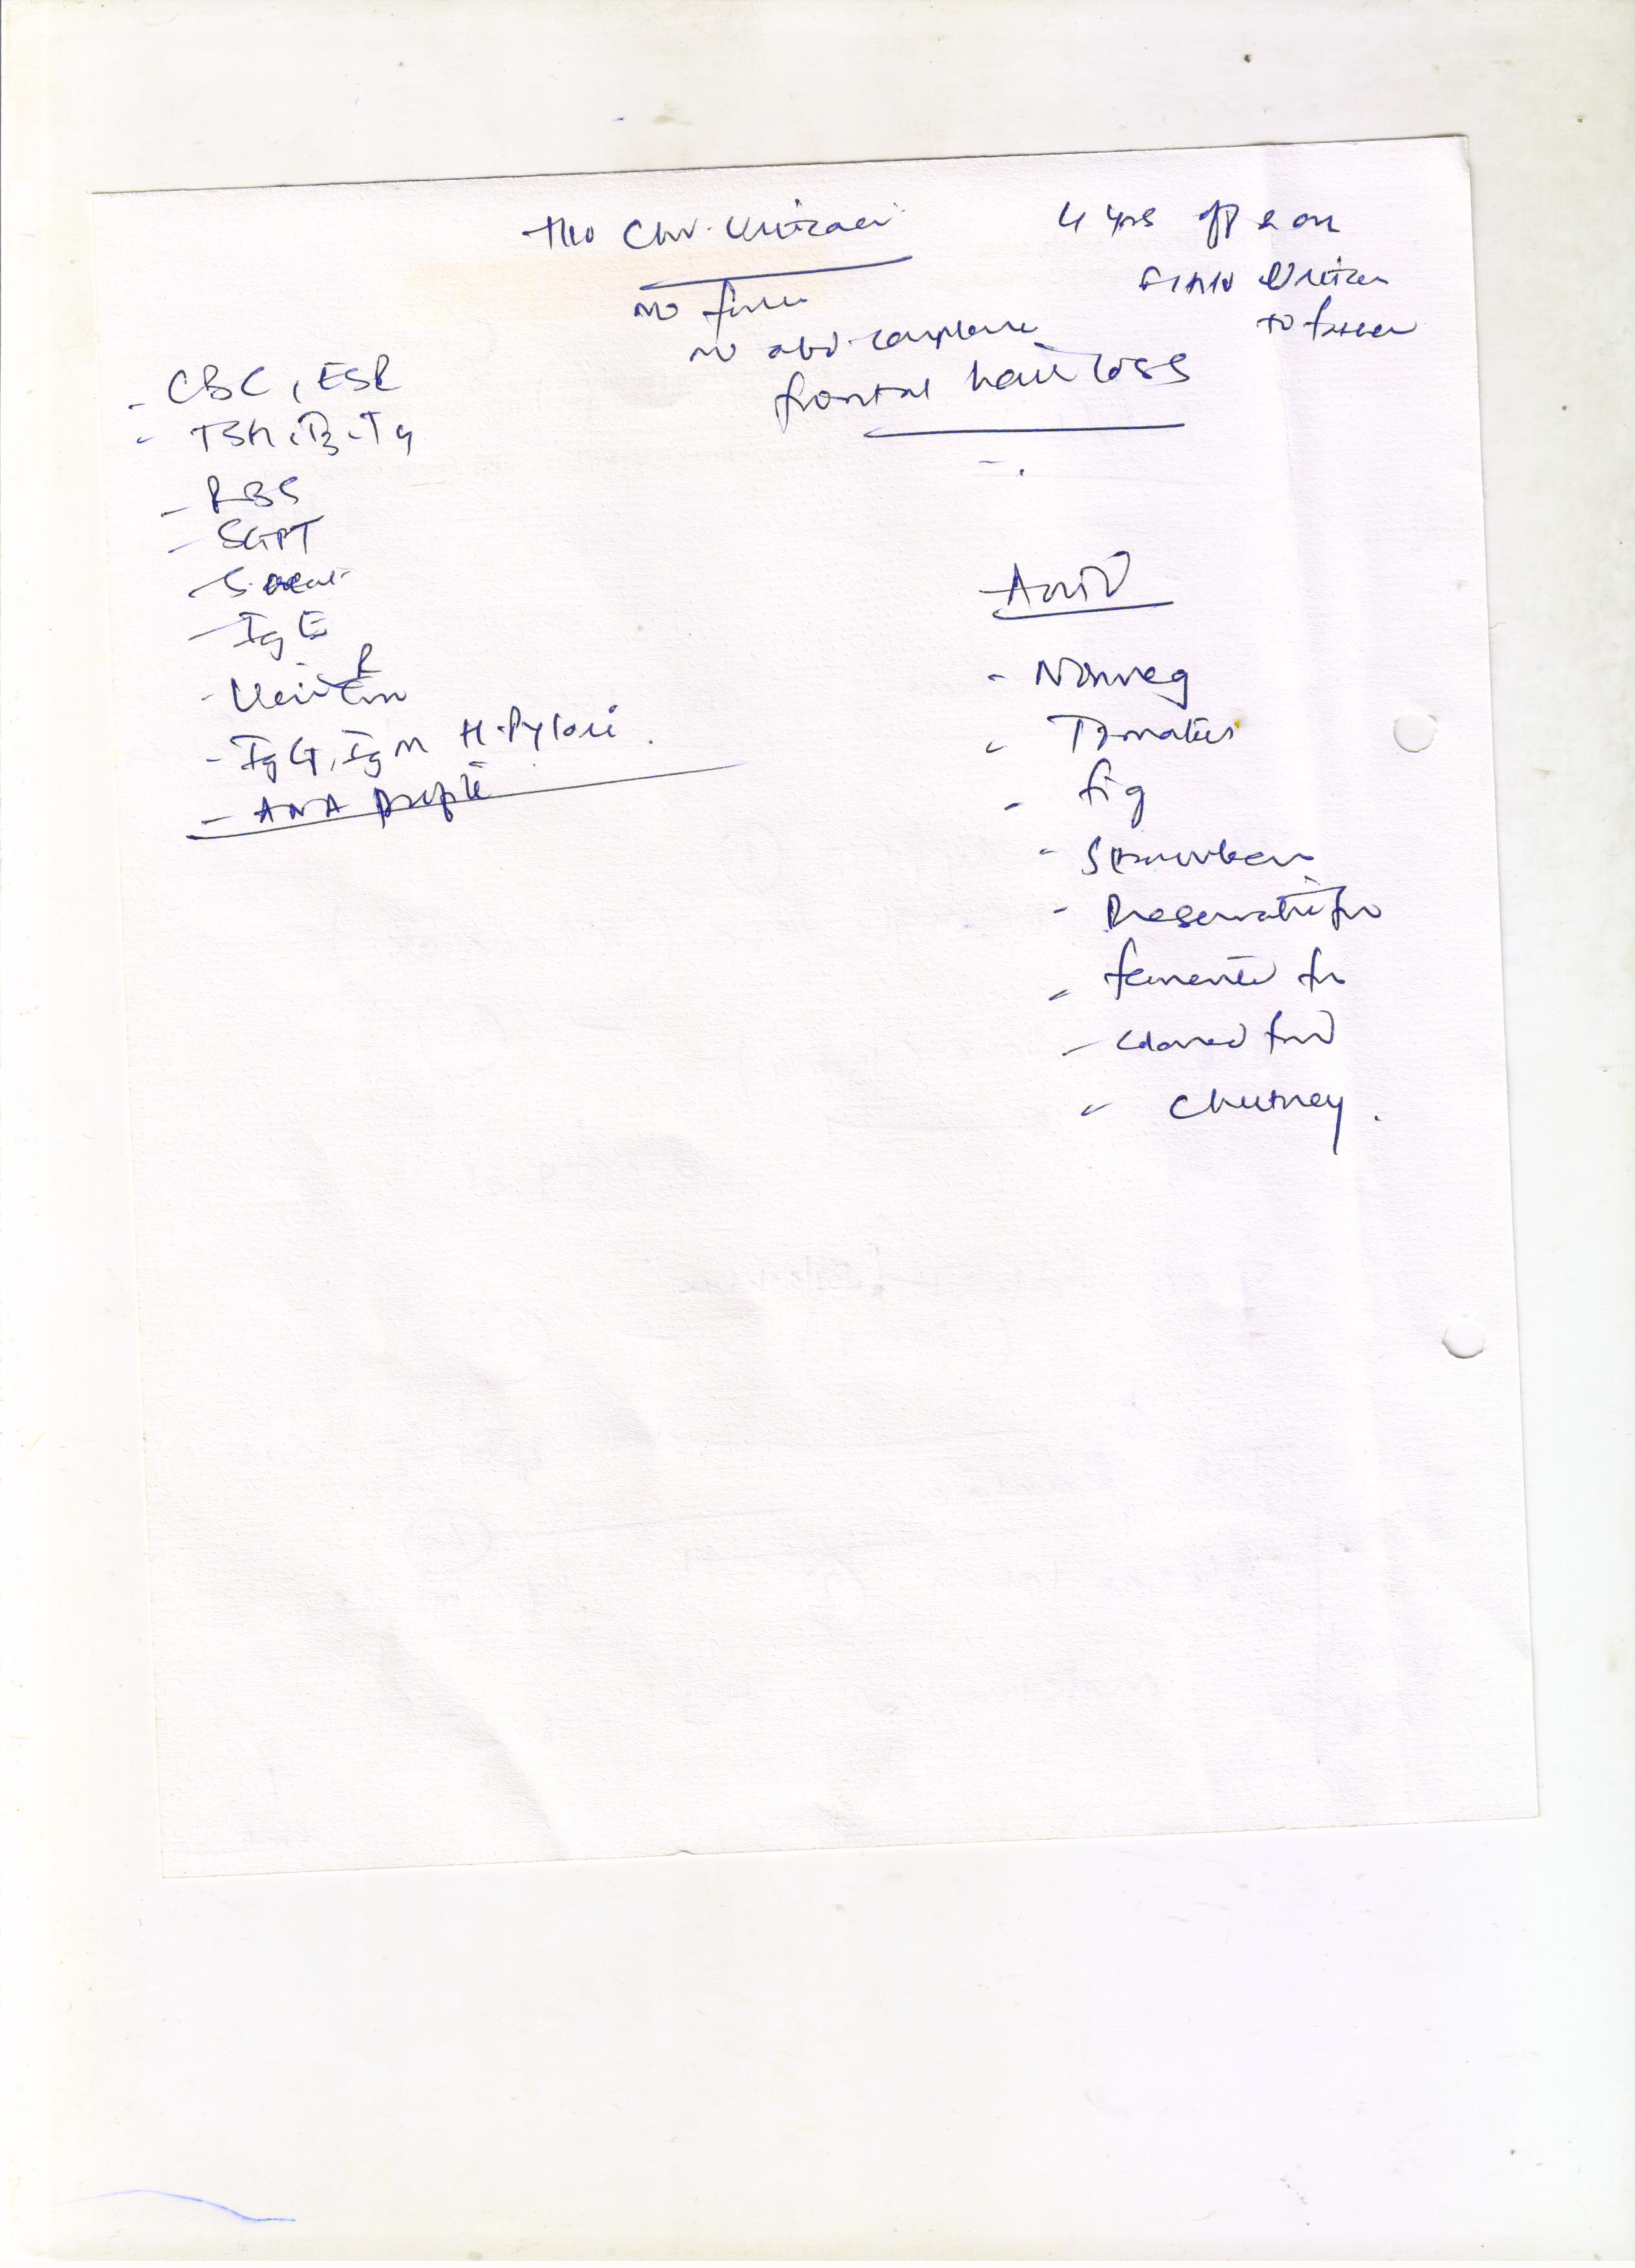 H/o Chr. Urticaria
4 yrs off & on
F/H/o Urticar
to father
no fever
no abd. complaint
frontal hair loss
- CBC, ESR
- TSH, T3, T4
- RBS
- SGPT
- S. creat.
- IgE
- Urine R
- IgG, IgM H. Pylori.
- ANA profile
Avoid
- Nonveg
- Tomatoes
- fig
- Strawberry
- Preservative
- fermented
- colored food
- Chutney.